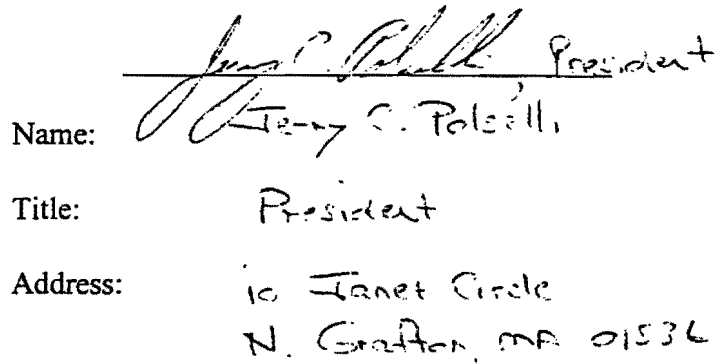 Jerry C. Polselli President
Name: Jerry C. Polselli
Title: President
Address: 10 Janet Circle
N. Grafton, MA 01536